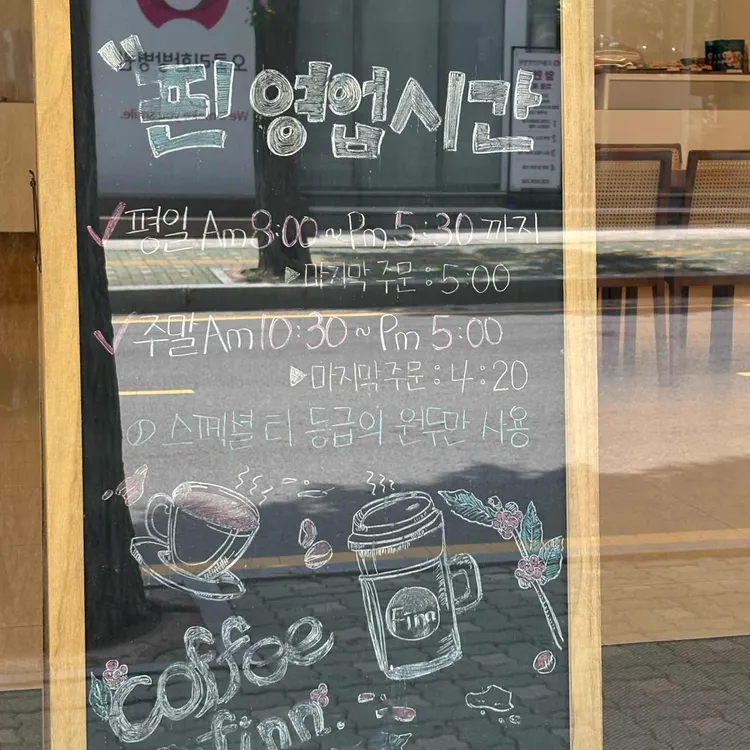 "핀 영업시간
평일 Am 8:00 ~ Pm 5:30 까지
▶마지막 주문 : 5:00
주말 Am 10:30 ~ Pm 5:00
▶마지막 주문 : 4:20
스페셜 티 등급의 원두만 사용
Finn
coffee
finn.